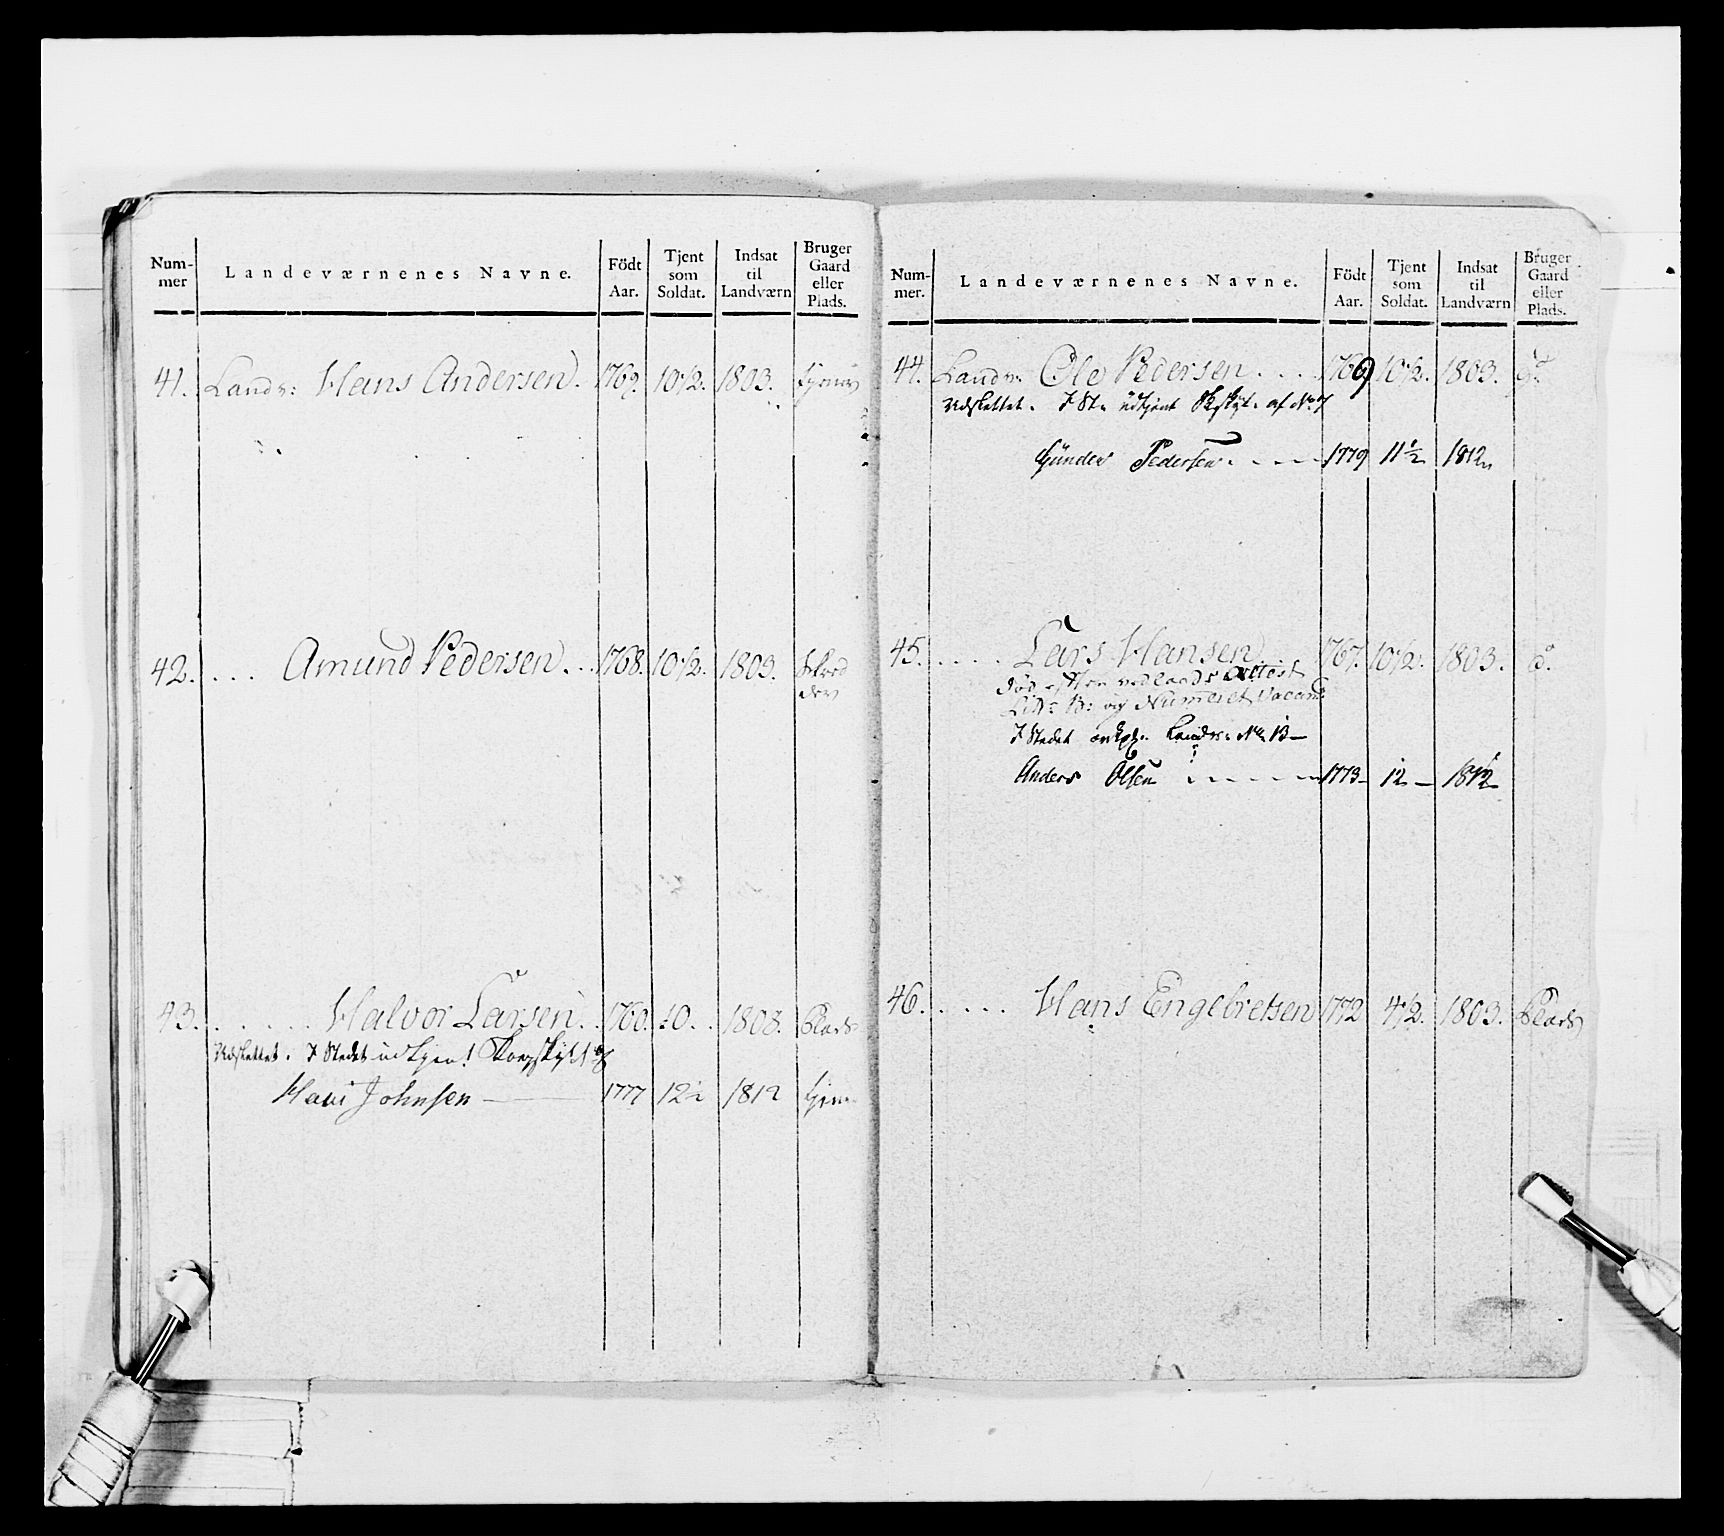 Num-mer Landeværnenes Navne. Födt Aar. Tjent som Soldat. Indsat til Landværn Bruger Gaard eller Plads.
41. Landv: Hans Andersen. 1769. 10 1/2. 1803.
42. ... Amund Pedersen... 1768. 10 1/2. 1803.
43. ...... Halvor Larsen.. 1760. 10.. 1808. Plads
Udslettet. I Stedet udtjent
Hans Johnsen 1777 12 1812
Num-mer. Landeværnenes Navne. Födt Aar. Tjent som Soldat. Indsat til Landværn Bruger Gaard eller Plads.
44. Landv: Ole Pedersen.... 1769 10 1/2. 1803. do
Udslettet. I St: udtjent af No 7
Gunder Pedersen.... 1779 11 1/2 1812
45. ..... Lars Hansen 1767. 10 1/2. 1803. do
död efter vedlagde Attest
Litr: B: og Nummeret Vacant
I Stedet Landv: No 13
Anders Olsen 1773 12 1812
46. ..... Hans Engebretsen 1772 4 1/2. 1803. Plads